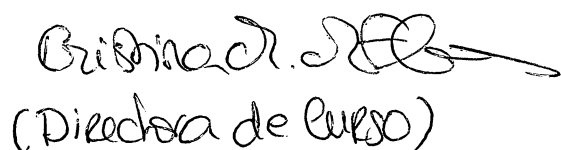 Cristina M.
(Directora de Curso)